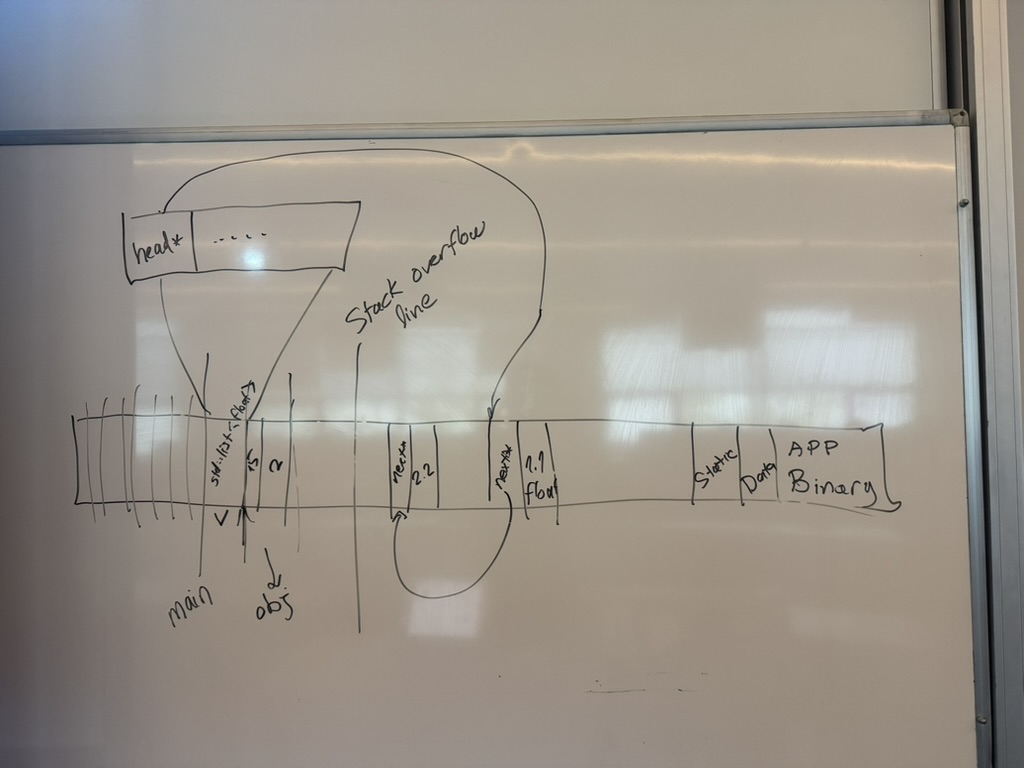 head* .....
Stack overflow
line
std::list<float>
v
15
2
next*
2.2
next*
1.1
float
Static
Data
APP
Binary
main
obj